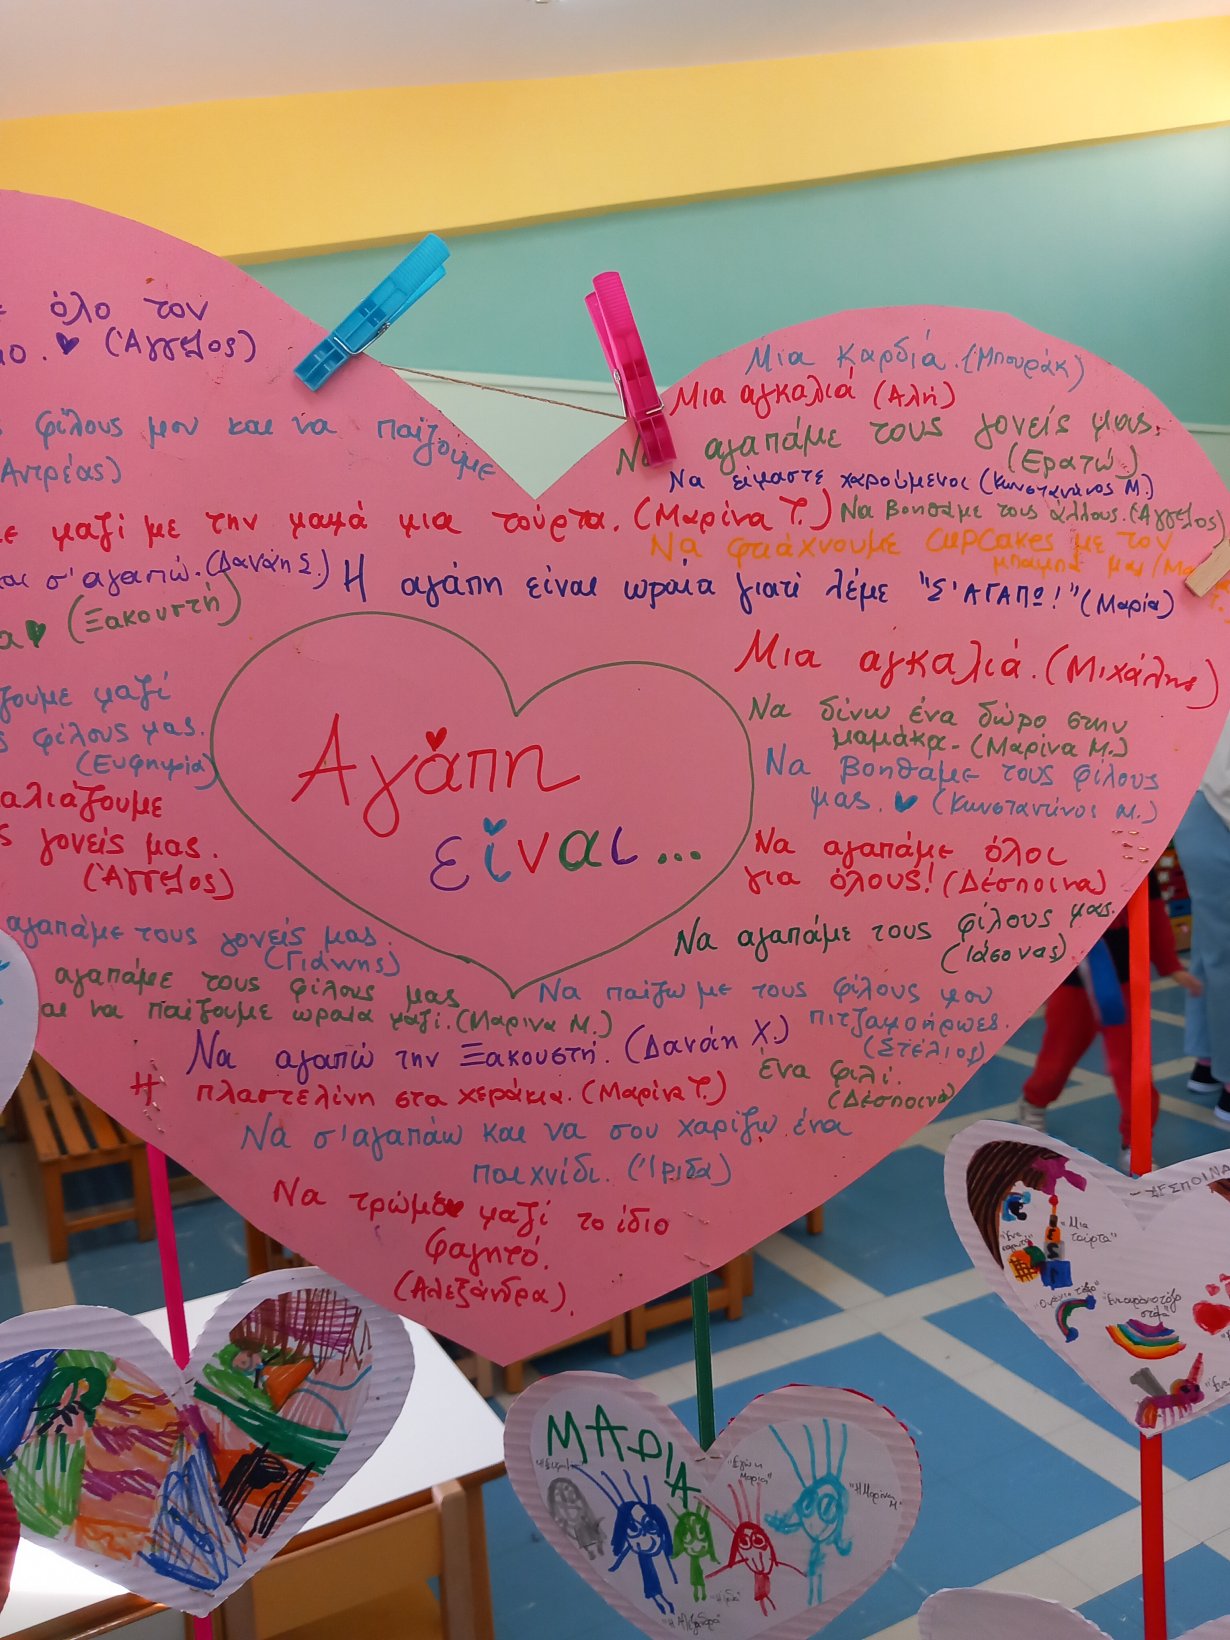 όλο τον
(Άγγελος)
φίλους μου και να παίζουμε
(Αντρέας)
μαζί με την μαμά μια τούρτα. (Μαρίνα Τ.)
σ'αγαπώ. (Δανάη Σ.)
(Ξακουστή)
μαζί
φίλους μας.
(Ευφημία)
γονείς μας.
(Άγγελος)
αγαπάμε τους γονείς μας.
(Γιάννης)
αγαπάμε τους φίλους μας
να παίζουμε ωραία μαζί. (Μαρίνα Μ.)
Μια καρδιά. (Μπουράκ)
Μια αγκαλιά (Αλή)
αγαπάμε τους γονείς μας.
(Ερατώ)
Να είμαστε χαρούμενοι (Κωνσταντίνος Μ.)
Να βοηθάμε τους άλλους. (Άγγελος)
Να φτιάχνουμε cupcakes με τον
μπαμπά μας
Η αγάπη είναι ωραία γιατί λέμε "Σ'ΑΓΑΠΩ!" (Μαρία)
Μια αγκαλιά. (Μιχάλης)
Να δίνω ένα δώρο στην
μαμάκα. (Μαρίνα Μ.)
Να βοηθάμε τους φίλους
μας. (Κωνσταντίνος Μ.)
Να αγαπάμε όλοι
για όλους! (Δέσποινα)
Να αγαπάμε τους φίλους μας.
(Ιάσονας)
Αγάπη
είναι...
Να παίζω με τους φίλους μου
πιτζαμοήρωες.
(Στέλιος)
Να αγαπώ την Ξακουστή. (Δανάη Χ.)
ένα φιλί.
(Δέσποινα)
Η πλαστελίνη στα χεράκια. (Μαρίνα Τ.)
Να σ'αγαπάω και να σου χαρίζω ένα
παιχνίδι. (Ίριδα)
Να τρώμε μαζί το ίδιο
φαγητό.
(Αλεξάνδρα).
ΜΑΡΙΑ
"Εγώ η
Μαρία"
"Η Μαρίνα
Μ"
"Η Αλεξάνδρα"
ΔΕΣΠΟΙΝΑ
"Μια
τούρτα"
"Ένα
"Ένα ουράνιο τόξο